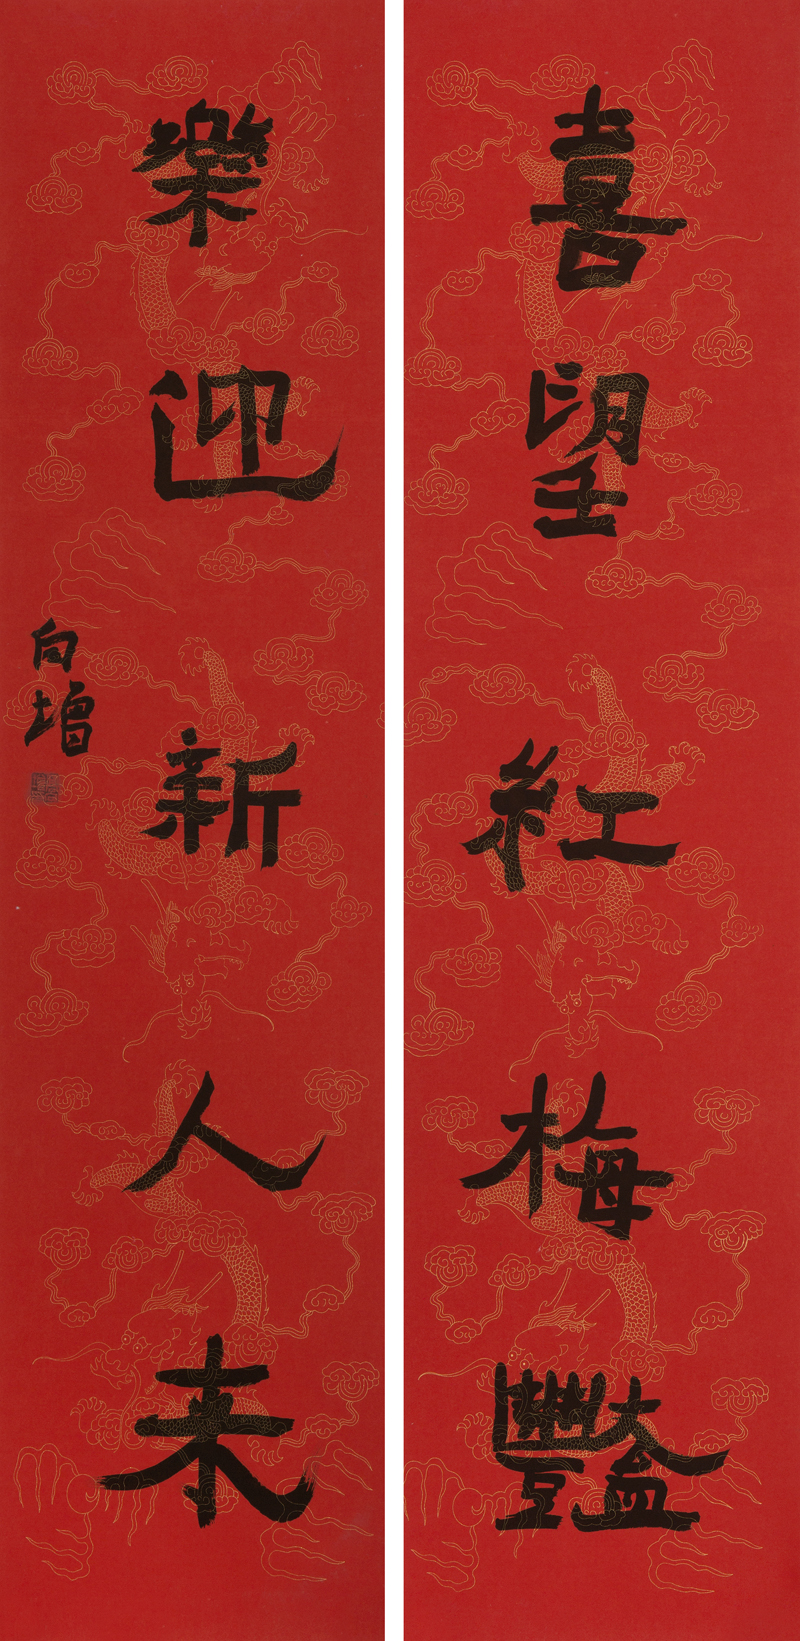 喜望紅梅豔
樂迎新人来
向增